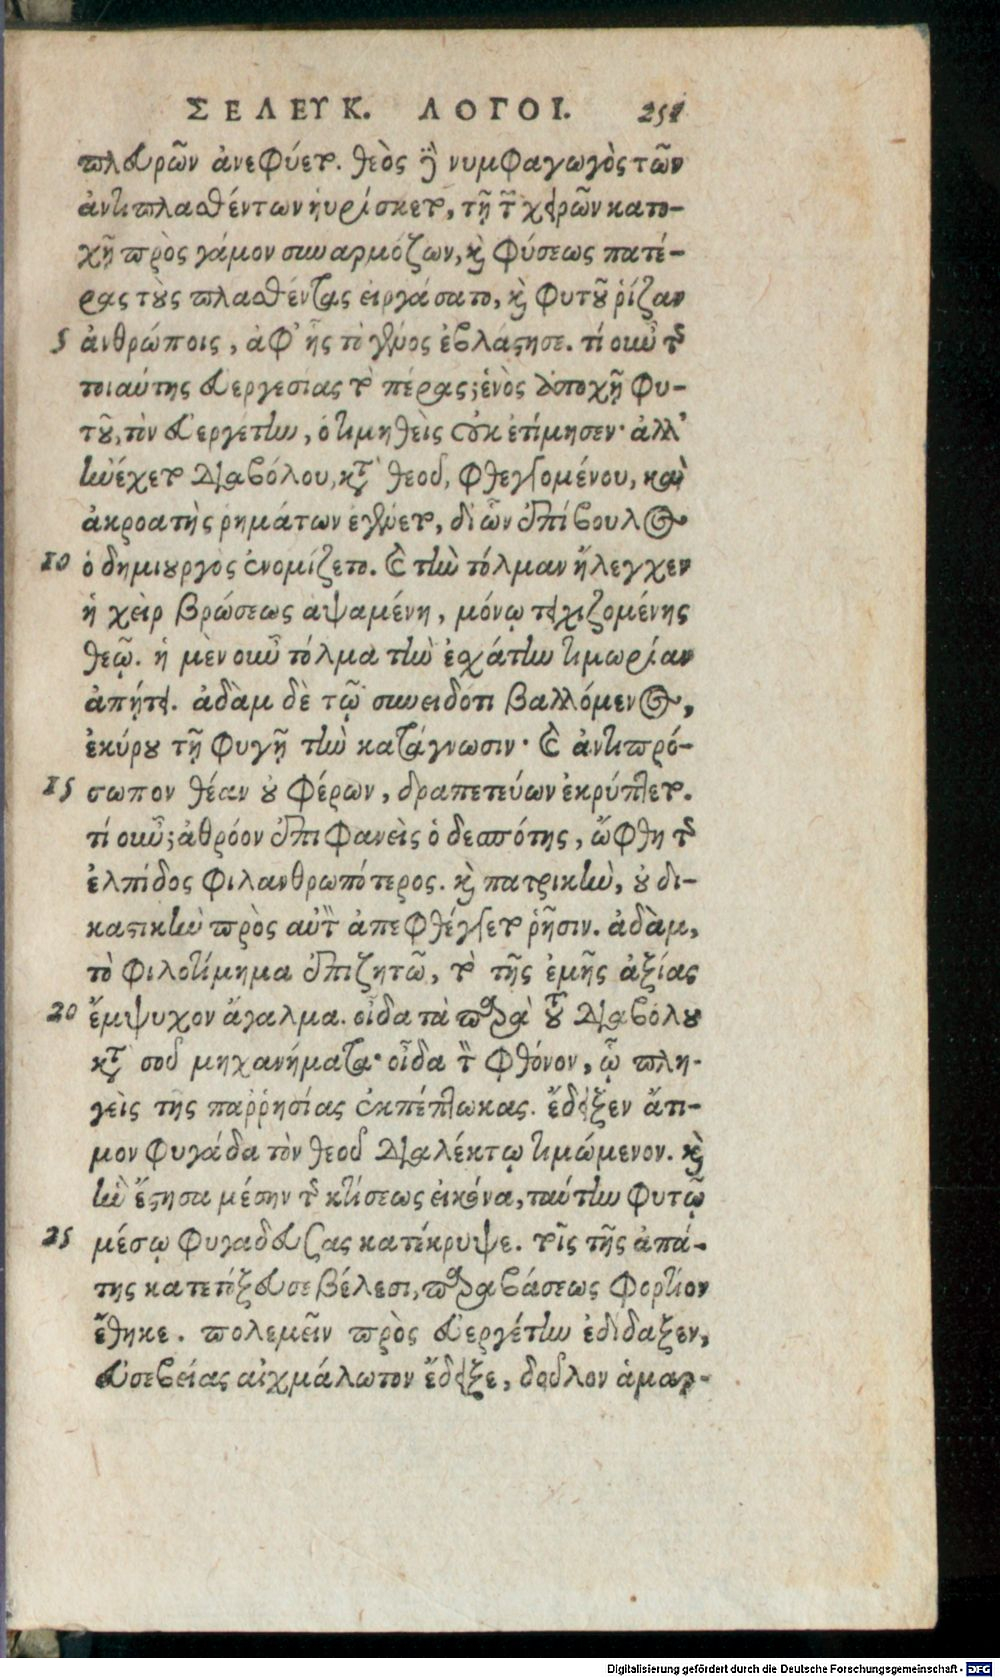 ΣΕΛΕΥΚ. ΛΟΓΟΙ. 251
πλευρῶν ἀνεφύετο. θεὸς δὲ νυμφαγωγὸς τῶν
ἀντιπλασθέντων ηὑρίσκετο, τῇ τῶν χειρῶν κατο-
χῇ πρὸς γάμον συναρμόζων, καὶ φύσεως πατέ-
ρας τοὺς πλασθέντας εἰργάσατο, καὶ φυτοῦ ῥίζαν
5 ἀνθρώποις, ἀφ' ἧς τὸ γένος ἐβλάστησε. τί οὖν τῆς
τοιαύτης εὐεργεσίας τὸ πέρας; ἑνὸς ἀποχῇ φυ-
τοῦ, τὸν εὐεργέτην, ὁ τιμηθεὶς οὐκ ἐτίμησεν· ἀλλ'
ἠνέχετο διαβόλου, κατὰ θεοῦ, φθεγξομένου, καὶ
ἀκροατὴς ῥημάτων ἐγένετο, δι ὧν ἐπίβουλος
10 ὁ δημιουργὸς ἐνομίζετο. καὶ τὴν τόλμαν ἤλεγχεν
ἡ χεὶρ βρώσεως ἁψαμένη, μόνῳ τειχιζομένης
θεῷ. ἡ μὲν οὖν τόλμα τὴν ἐσχάτην τιμωρίαν
ἀπῄτει. ἀδὰμ δὲ τῷ συνειδότι βαλλόμενος,
ἐκύρου τῇ φυγῇ τὴν κατάγνωσιν· καὶ ἀντιπρό-
15 σωπον θέαν οὐ φέρων, δραπετεύων ἐκρύπτετο.
τί οὖν; ἀθρόον ἐπιφανεὶς ὁ δεσπότης, ὤφθη τῆς
ἐλπίδος φιλανθρωπότερος. καὶ πατρικὴν, οὐ δι-
καστικὴν πρὸς αὐτὸν ἀπεφθέγξετο ῥῆσιν. ἀδὰμ,
τὸ φιλοτίμημα ἐπιζητῶ, τὸ τῆς ἐμῆς ἀξίας
20 ἔμψυχον ἄγαλμα. οἶδα τὰ παρὰ τοῦ διαβόλου
κατὰ σοῦ μηχανήματα· οἶδα τὸν φθόνον, ᾧ πλη-
γεὶς τῆς παῤῥησίας ἐκπέπτωκας. ἔδειξεν ἄτι-
μον φυγάδα τὸν θεοῦ διαλέκτῳ τιμώμενον. καὶ
ἣν ἔστησα μέσην τῆς κτίσεως εἰκόνα, ταύτην φυτῷ
25 μέσῳ φυγαδεύσας κατέκρυψε. τοῖς τῆς ἀπά-
της κατετόξευσε βέλεσι, παραβάσεως φορτίον
ἔθηκε. πολεμεῖν πρὸς εὐεργέτην ἐδίδαξεν,
εὐσεβείας αἰχμάλωτον ἔδειξε, δοῦλον ἁμαρ-
Digitalisierung gefördert durch die Deutsche Forschungsgemeinschaft - DFG